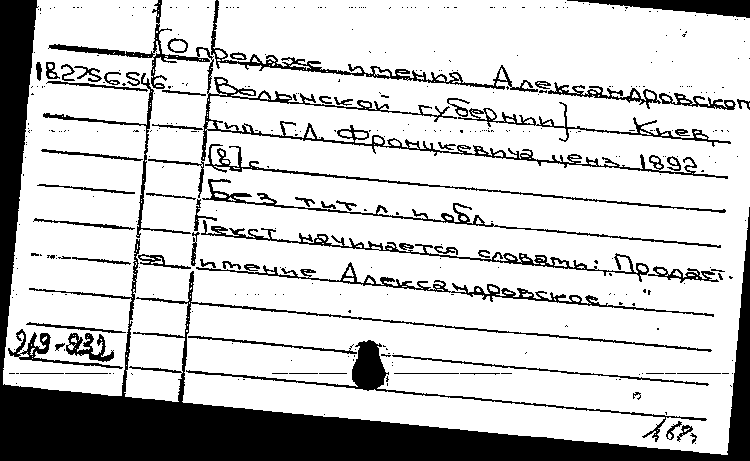 [О продаже имения Александровского
18275G.S4G. Волынской губернии]. Киев,
тип. Г.Л. Фронцкевича, ценз. 1892.
[8] с.
Без тит. л. и обл.
Текст начинается словами: „Продает-
ся имение Александровское..."